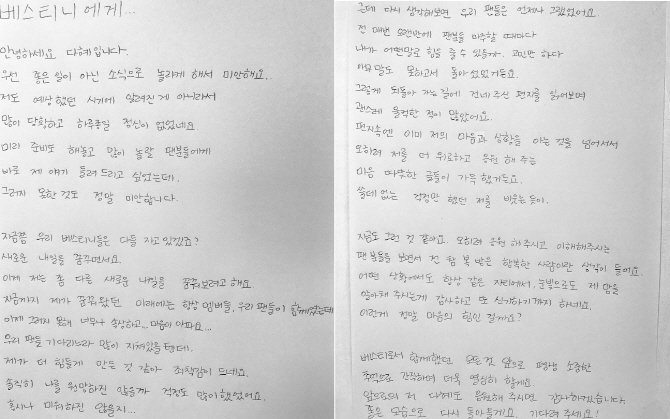 베스티니에게...
안녕하세요 다혜입니다.
우선 좋은일이 아닌 소식으로 놀라게 해서 미안해요..
저도 예상했던 시기에 알려진게 아니라서
많이 당황하고 하루종일 정신이 없었네요
미리 준비도 해놓고 많이 놀랄 팬분들에게
바로 제 얘기 들려드리고 싶었는데.
그러지 못한것도 정말 미안합니다.
지금쯤 우리 베스티니들은 다들 자고있겠죠?
새로운 내일을 꿈꾸면서요.
이제 저는 좀 다른 새로운 내일을 꿈꿔보려고 해요.
지금까지 제가 꿈꿔왔던 미래에는 항상 멤버들, 우리 팬들이 함께였는데
이제 그러지 못해 너무나 속상하고.. 마음이 아파요...
우리 팬들 기다리느라 많이 지쳐있을텐데.
제가 더 힘들게 만든 것 같아 죄책감이 드네요.
솔직히 나를 원망하진 않을까 걱정도 많이했었어요.
혹시나 미워하진 않을지...
근데 다시 생각해보면 우리 팬들은 언제나 그랬었어요
전 매번 오랜만에 팬분들 마주할 때마다
내가 어떤말로 힘을 줄 수 있을까. 고민만 하다
아무말도 못하고서 돌아섰었거든요.
그렇게 되돌아 가는길에 건네주신 편지를 읽어보며
괜스레 울컥한 적이 많았어요.
편지속엔 이미 저의 마음과 상황을 아는 것을 넘어서서
오히려 저를 더 위로하고 응원 해 주는
마음 따뜻한 글들이 가득 했거든요.
쓸데없는 걱정만 했던 저를 비웃는듯이.
지금도 그런 것 같아요. 오히려 응원 해주시고 이해해주시는
팬분들을 보면서 전 참 복 받은 행복한 사람이란 생각이 들어요.
어떤 상황에서도 항상 같은 자리에서, 눈빛으로도 제 맘을
알아채 주시는게 감사하고 또 신기하기까지 하네요.
이런게 정말 마음의 힘인 걸까요?
베스티로서 함께했던 모든것, 앞으로 평생 소중한
추억으로 간직하며 더욱 열심히 할게요.
앞으로의 저 다혜도 응원해 주시면 감사하겠습니다.
좋은 모습으로 다시 돌아올게요. 기다려 주세요!